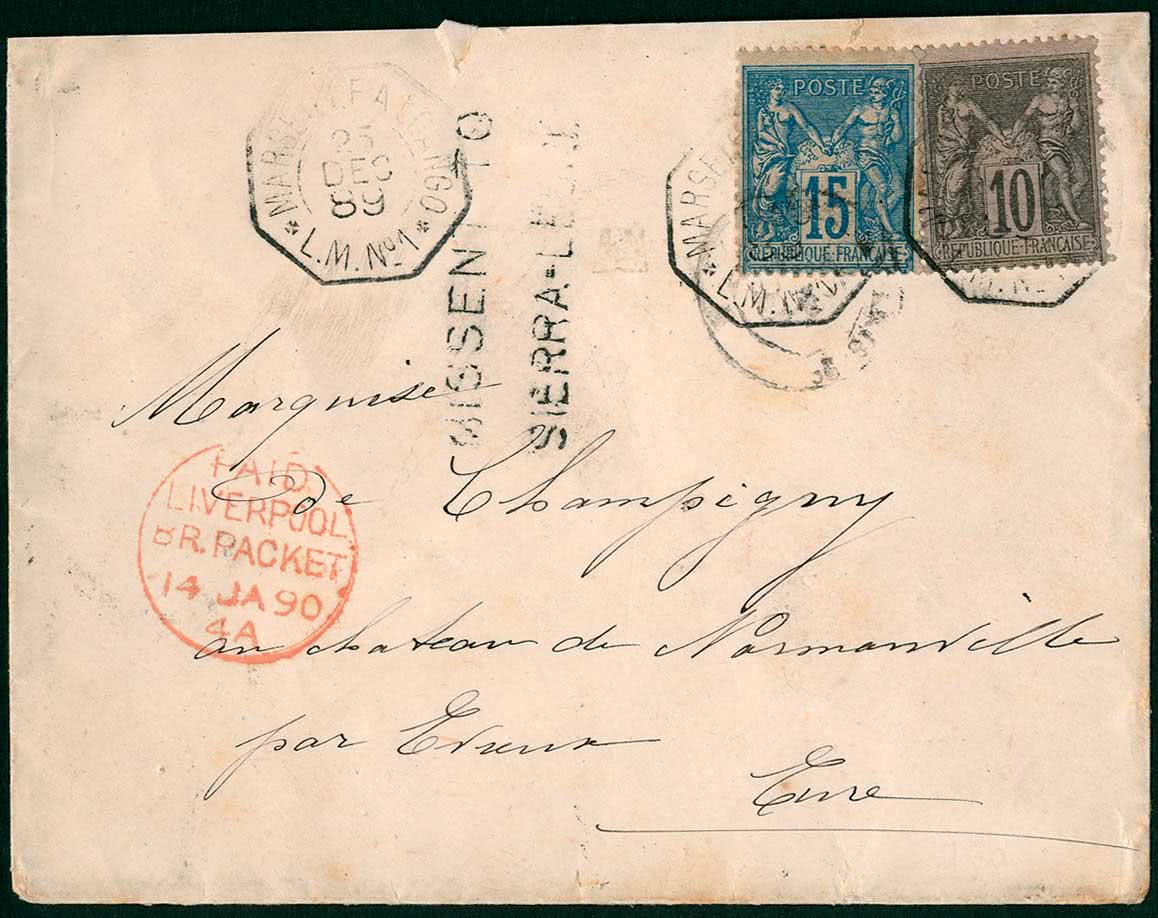 POSTE
15
REPUBLIQUE·FRANÇAISE
POSTE
10
REPUBLIQUE·FRANÇAISE
25
DEC
89
* L.M. Nº1 *
MISSENT TO
Marquise
de Champigny
PAID
LIVERPOOL
BR. PACKET
14 JA 90
4A
au chateau de Normanville
par Evreux
Eure